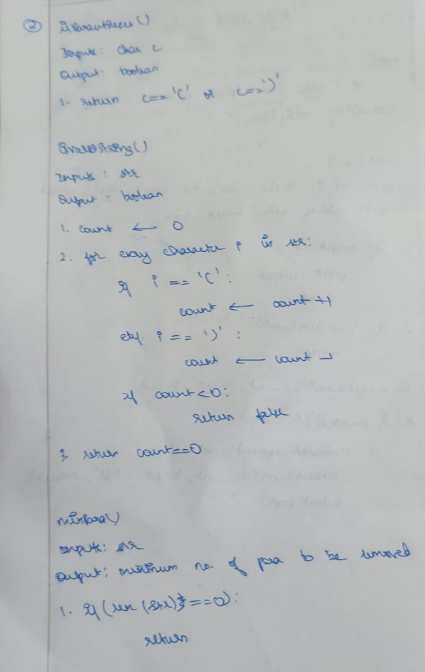 ② isParanthesis()
Input: char c
Output: boolean
1. return c=='(' or c==')'
isValidString()
Input: str
Output: boolean
1. count ← 0
2. for every character i in str:
if i == '(':
count ← count +1
elif i == ')':
count ← count -1
if count<0:
return false
3. return count==0
minPara()
Input: str
Output: minimum no. of para to be removed
1. if (len (str) ==0):
return